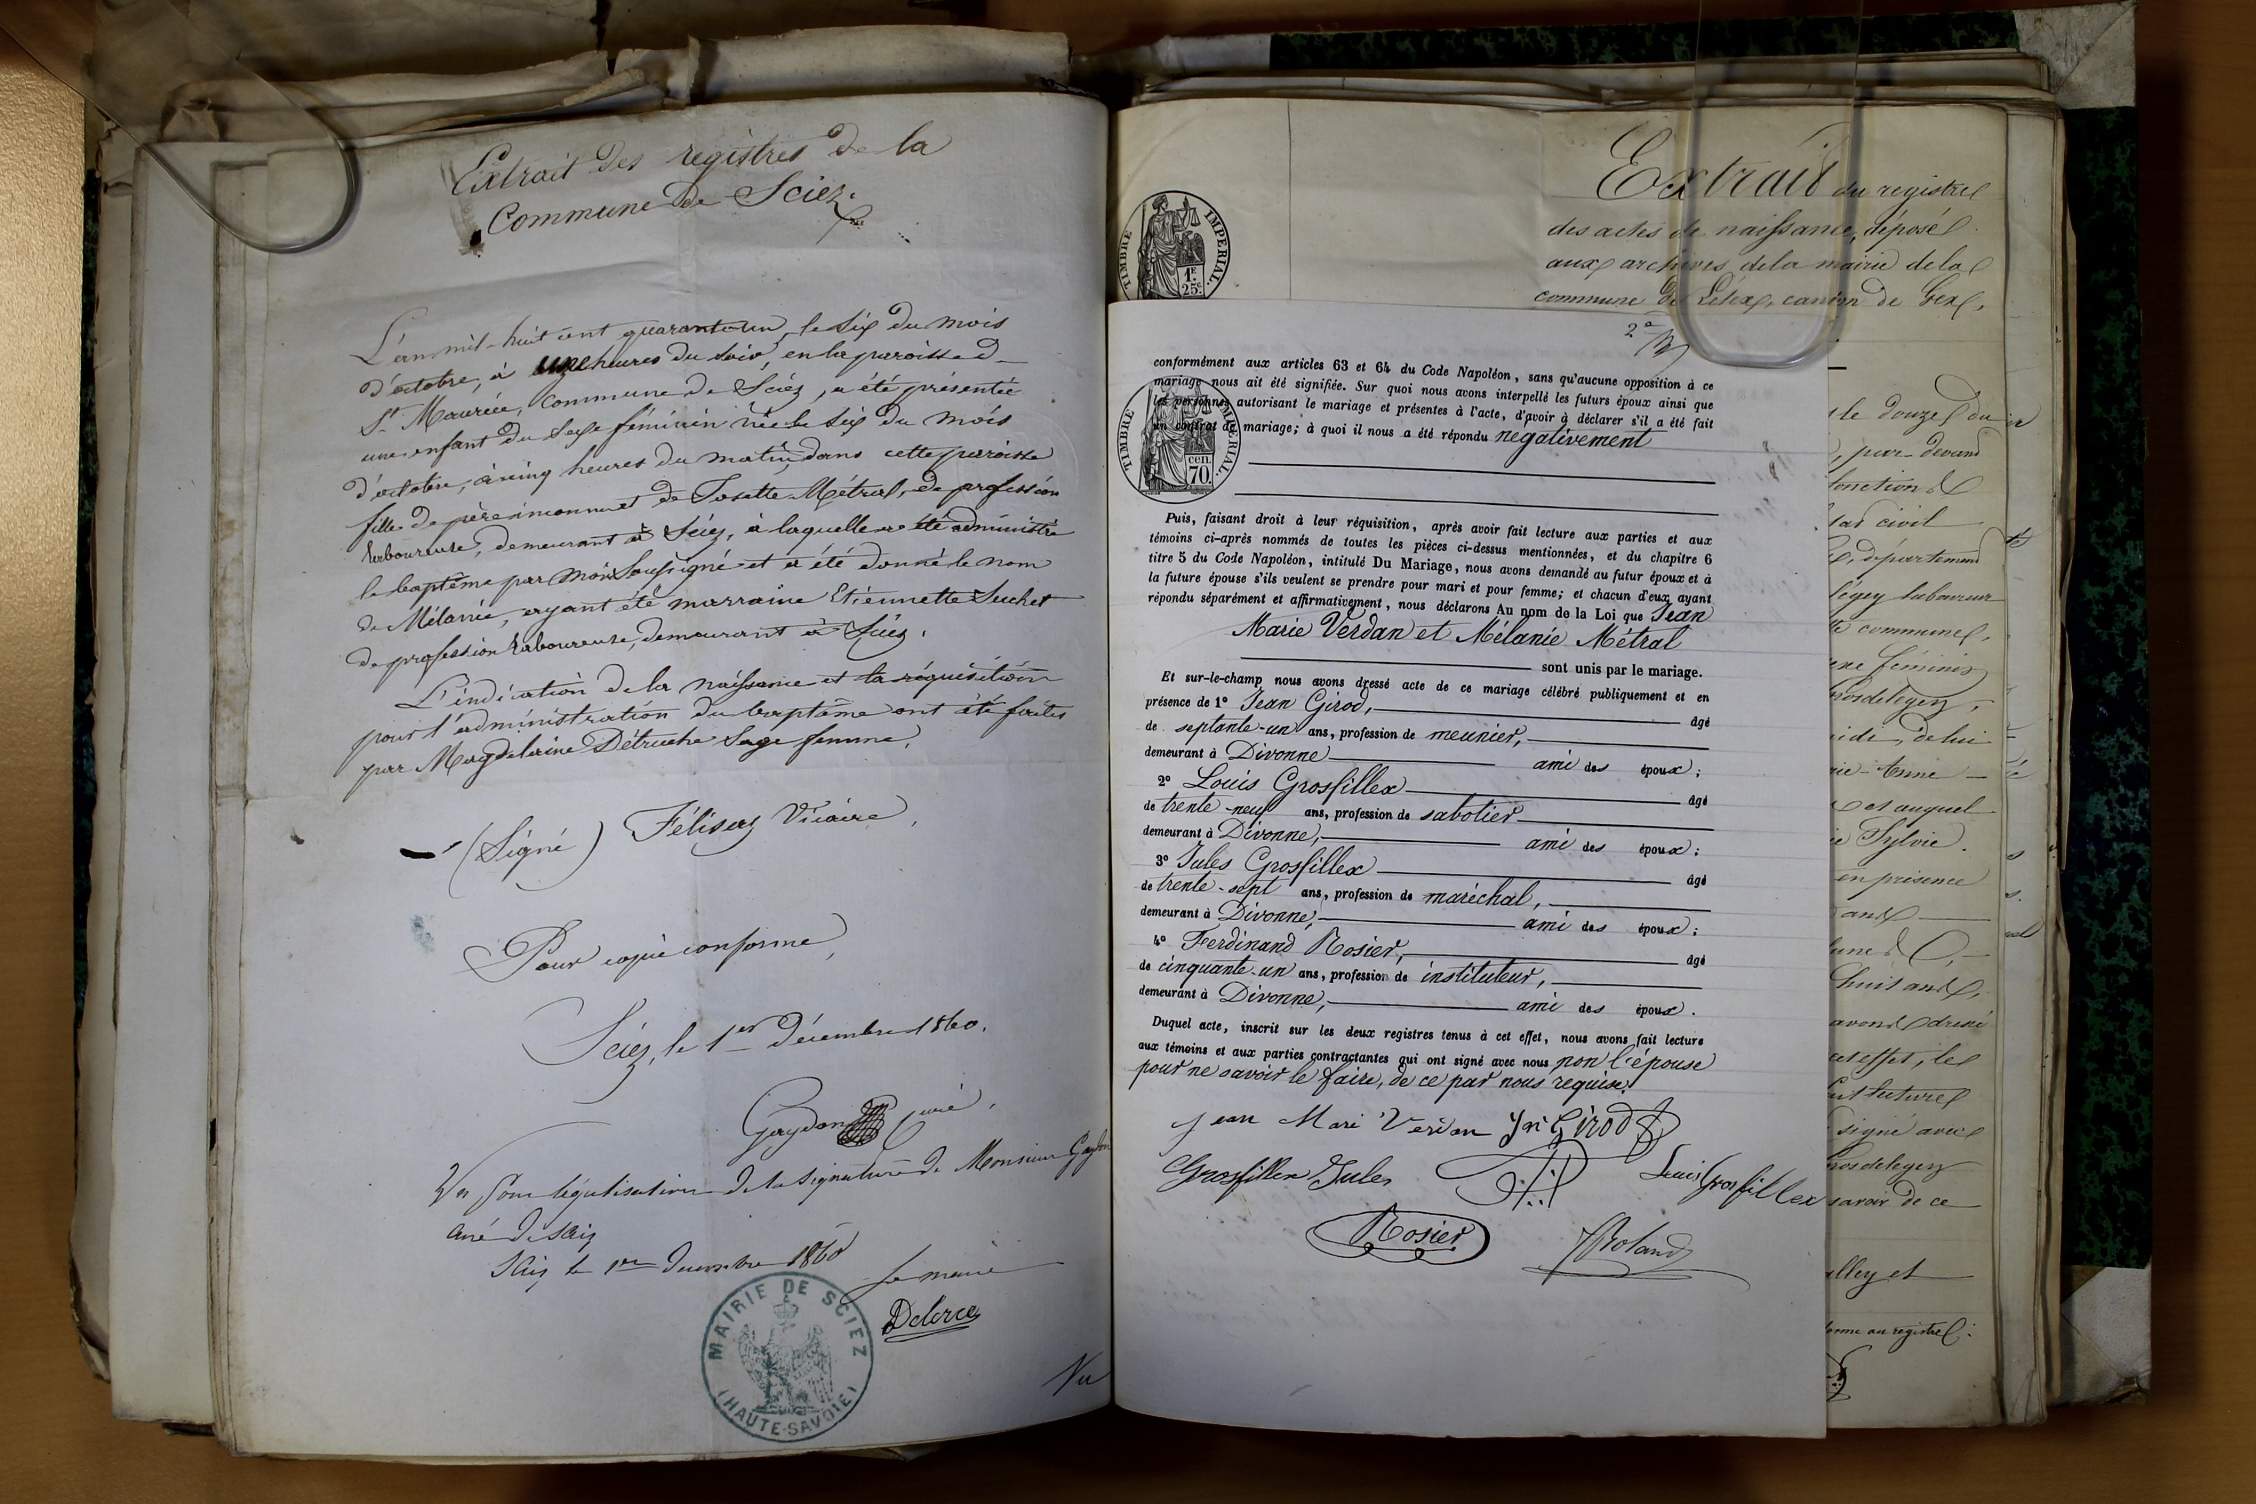 Extrait des registres de la
Commune de Sciez.
L'an mil-huit cent quarante-un, le six du mois
d'octobre, à onze heures du soir, en la paroisse d
St. Maurice, commune de Sciez, a été présentée
une enfant du sexe féminin née le six du mois
d'octobre, à cinq heures du matin, dans cette paroisse
fille de père inconnu et de Josette Métral, de profession
laboureuse, demeurant à Sciez, à laquelle a été administré
le baptême par moi soussigné et a été donné le nom
de Mélanie, ayant été marraine Etiennette Suchet
de profession laboureuse, demeurant à Sciez.
L'indication de la naissance et la réquisition
pour l'administration du baptême ont été faites
par Magdelaine Détruche sage femme.
(Signé) Félisaz Vicaire,
Pour copie conforme,
Sciez, le 1er Décembre 1860.
Gaydon Curé,
Vu pour légalisation de la signature de Monsieur Gaydon
curé de Sciez
Sciez le 1er Decembre 1860
Le maire
Delerce
MAIRIE DE SCIEZ
(HAUTE-SAVOIE)
Vu
Extrait du registre
des actes de naissance, déposé
aux archives de la mairie de la
commune de Lelex, canton de Gex,
TIMBRE IMPERIAL.
1F.
25c.
2e
conformément aux articles 63 et 64 du Code Napoléon, sans qu'aucune opposition à ce
mariage nous ait été signifiée. Sur quoi nous avons interpellé les futurs époux ainsi que
les personnes autorisant le mariage et présentes à l'acte, d'avoir à déclarer s'il a été fait
un contrat de mariage; à quoi il nous a été répondu negativement
TIMBRE IMPERIAL.
cen
70.
Puis, faisant droit à leur réquisition, après avoir fait lecture aux parties et aux
témoins ci-après nommés de toutes les pièces ci-dessus mentionnées, et du chapitre 6
titre 5 du Code Napoléon, intitulé Du Mariage, nous avons demandé au futur époux et à
la future épouse s'ils veulent se prendre pour mari et pour femme; et chacun d'eux ayant
répondu séparément et affirmativement, nous déclarons Au nom de la Loi que Jean
Marie Verdan et Mélanie Métral
sont unis par le mariage.
Et sur-le-champ nous avons dressé acte de ce mariage célébré publiquement et en
présence de 1° Jean Girod, âgé
de septante-un ans, profession de meunier,
demeurant à Divonne ami des époux;
2° Louis Grosfillex âgé
de trente-neuf ans, profession de sabotier
demeurant à Divonne, ami des époux;
3° Jules Grosfillex âgé
de trente-sept ans, profession de maréchal,
demeurant à Divonne, ami des époux;
4° Ferdinand Rosier, âgé
de cinquante-un ans, profession de instituteur,
demeurant à Divonne, ami des époux.
Duquel acte, inscrit sur les deux registres tenus à cet effet, nous avons fait lecture
aux témoins et aux parties contractantes qui ont signé avec nous non l'épouse
pour ne savoir le faire, de ce par nous requise.
Jean Mari Verdan Jn Girod
Grosfillex Jules Louis Grosfillex
Rosier Roland
le douze du
par devant
fonction d
état civil
département
laboureur
commune,
féminin
Grosdelegey,
de lui
Anne
et auquel
Sylvie.
en présence
ans
huit ans,
avons dressé
cet effet, le
instituteur
signé avec
Grosdelegey
savoir de ce
et
au registre.